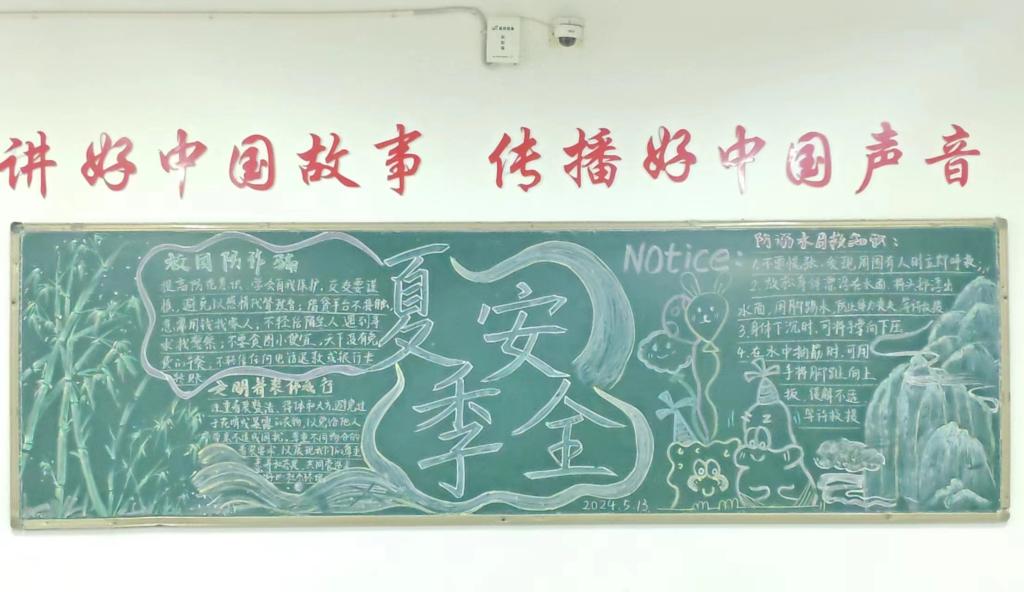 讲好中国故事 传播好中国声音
校园防诈骗
提高防范意识,学会自我保护,交友要谨
慎,避免以感情代替
意常用钱找家人,不轻信陌生人,遇到寻
求找警察;不要贪图小便宜,天下没有免
费的午餐,不轻信任何电话退款或银行卡
转账
文明着装伴我行
注重着装整洁、得体和大方,避免过
于花哨或暴露的衣物,以免给他人
带来不适或困扰。尊重不同场合的
着装要求,以展现我们的尊重
夏季
安全
2024.5.13.
Notice:
防溺水自救知识:
1.不要慌张,发现周围有人时立即呼救
2.放松身体漂浮在水面,将头部浮出
水面,用脚踢水,防止体力丧失,等待救援
3.身体下沉时,可将手掌向下压
4.在水中抽筋时,可用
手将脚趾向上
扳,缓解不适
等待救援